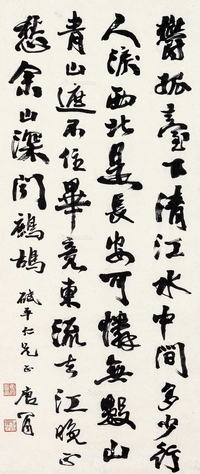 鬱孤臺下清江水中間多少行
人淚西北是長安可憐無數山
青山遮不住畢竟東流去江晚正
愁余山深聞鷓鴣
砥平仁兄正 唐寅